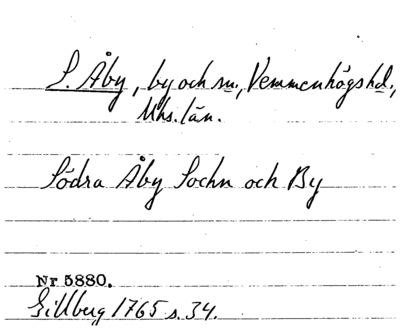 S. Åby, by och sn., Vemmenhögs hd.,
Mhs. län.
Södra Åby Sochn och By
Nr 5880.
Gillberg 1765 s. 34.